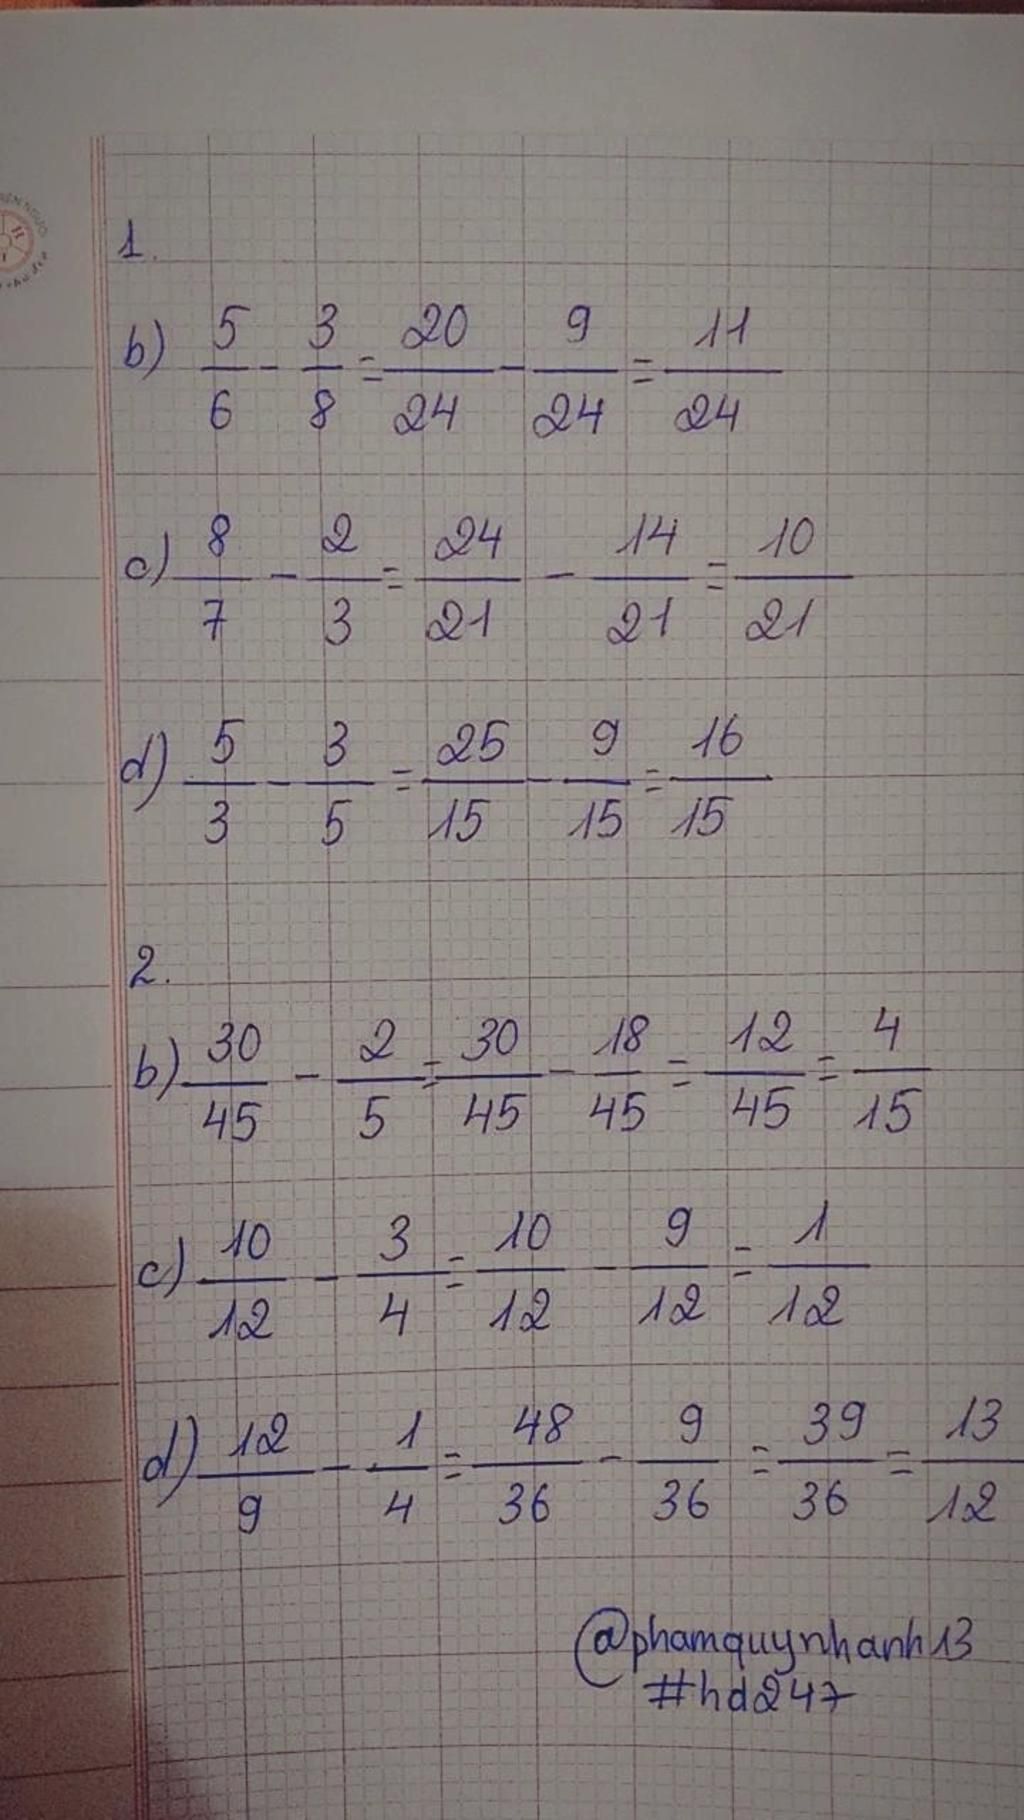 1.
b) 5/6 - 3/8 = 20/24 - 9/24 = 11/24
c) 8/7 - 2/3 = 24/21 - 14/21 = 10/21
d) 5/3 - 3/5 = 25/15 - 9/15 = 16/15
2.
b) 30/45 - 2/5 = 30/45 - 18/45 = 12/45 = 4/15
c) 10/12 - 3/4 = 10/12 - 9/12 = 1/12
d) 12/9 - 1/4 = 48/36 - 9/36 = 39/36 = 13/12
@phamquynhanh13
#hd247